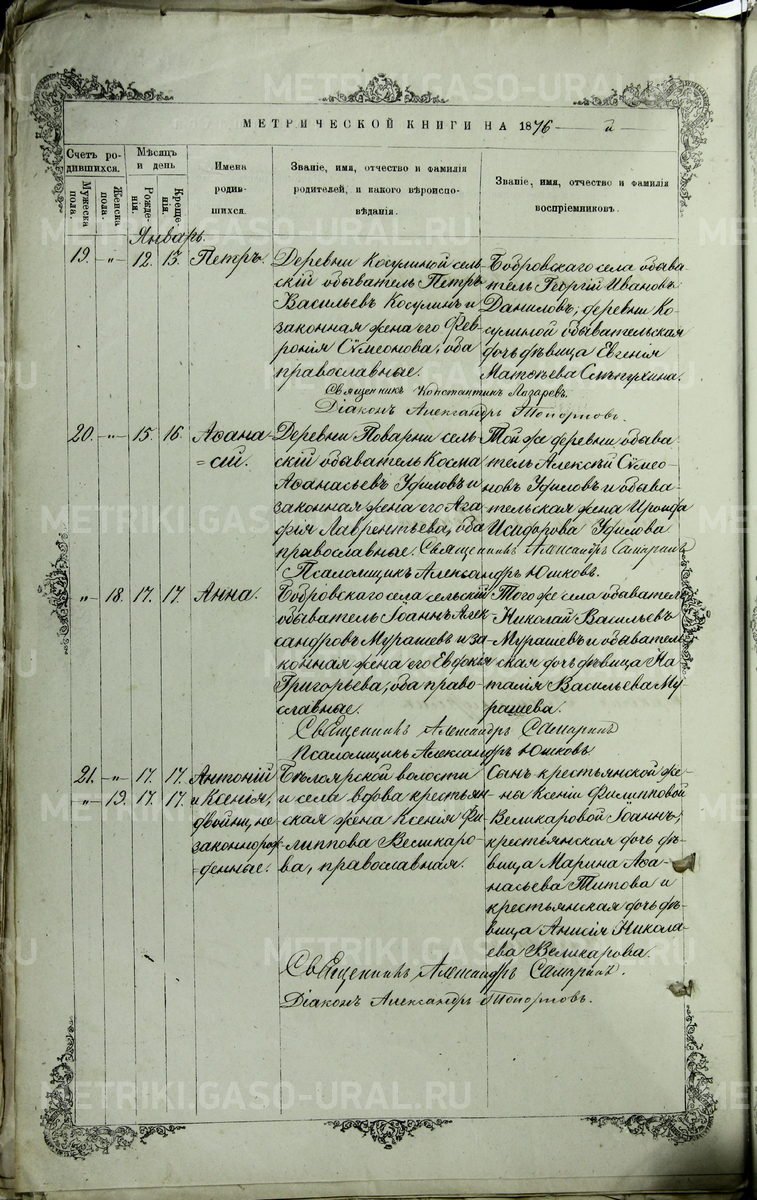 МЕТРИЧЕСКОЙ КНИГИ НА 1876 й
Счетъ ро-
дившихся.
Мужеска пола.
Женска пола.
Мѣсяцъ
и день
Рожде-
нія.
Креще-
нія.
Имена
родив-
шихся.
Званіе, имя, отчество и фамилія
родителей, и какого вѣроиспо-
вѣданія.
Званіе, имя, отчество и фамилія
воспріемниковъ.
Январь.
19. „ 12. 13. Петръ.
Деревни Косулиной сель-
скій обыватель Петръ
Васильевъ Косулинъ и
законная жена его Фев-
ронія Сѵмеонова, оба
православные.
Бобровскаго села обыва-
тель Георгій Ивановъ
Даниловъ; деревни Ко-
сулиной обывательская
дочь дѣвица Евгенія
Матѳѣева
Священникъ Константинъ Лазаревъ.
Діаконъ Александръ Топорковъ.
20. „ 15. 16. Аѳана-
=сій.
Деревни Поварни сель-
скій обыватель Косма
Аѳанасьевъ Уфиловъ и
законная жена его Ага-
фія Лаврентьева, оба
православные.
Той же деревни обыва-
тель Алексѣй Сѵмео-
новъ Уфиловъ и обыва-
тельская жена
Исидорова Уфилова
Священникъ Александръ Самаринъ
Псаломщикъ Александръ Юшковъ.
„ 18. 17. 17. Анна.
Бобровскаго села сельскій
обыватель Іоаннъ Алек-
сандровъ Мурашевъ и за-
конная жена его Евдокія
Григорьева, оба право-
славные.
Того же села обыватель
Николай Васильевъ
Мурашевъ и обыватель
ская дочь дѣвица На
талія Васильева Му
рашева.
Священникъ Александръ Самаринъ
Псаломщикъ Александръ Юшковъ
21. „ 17. 17. Антоній
„ 19. 17. 17. и Ксенія,
двойни, не
законнорож-
=денные.
Бѣлоярской волости
и села вдова крестьян-
ская жена Ксенія Фи-
липпова Великаро-
ва, православная.
Сынъ крестьянской же-
ны Ксеніи Филипповой
Великаровой Іоаннъ;
крестьянская дочь дѣ-
вица Марина Аѳа-
насьева Титова и
крестьянская дочь дѣ-
вица Анисія Никола-
ева Великарова.
Священникъ Александръ Самаринъ.
Діаконъ Александръ Топорковъ.
METRIKI.GASO-URAL.RU